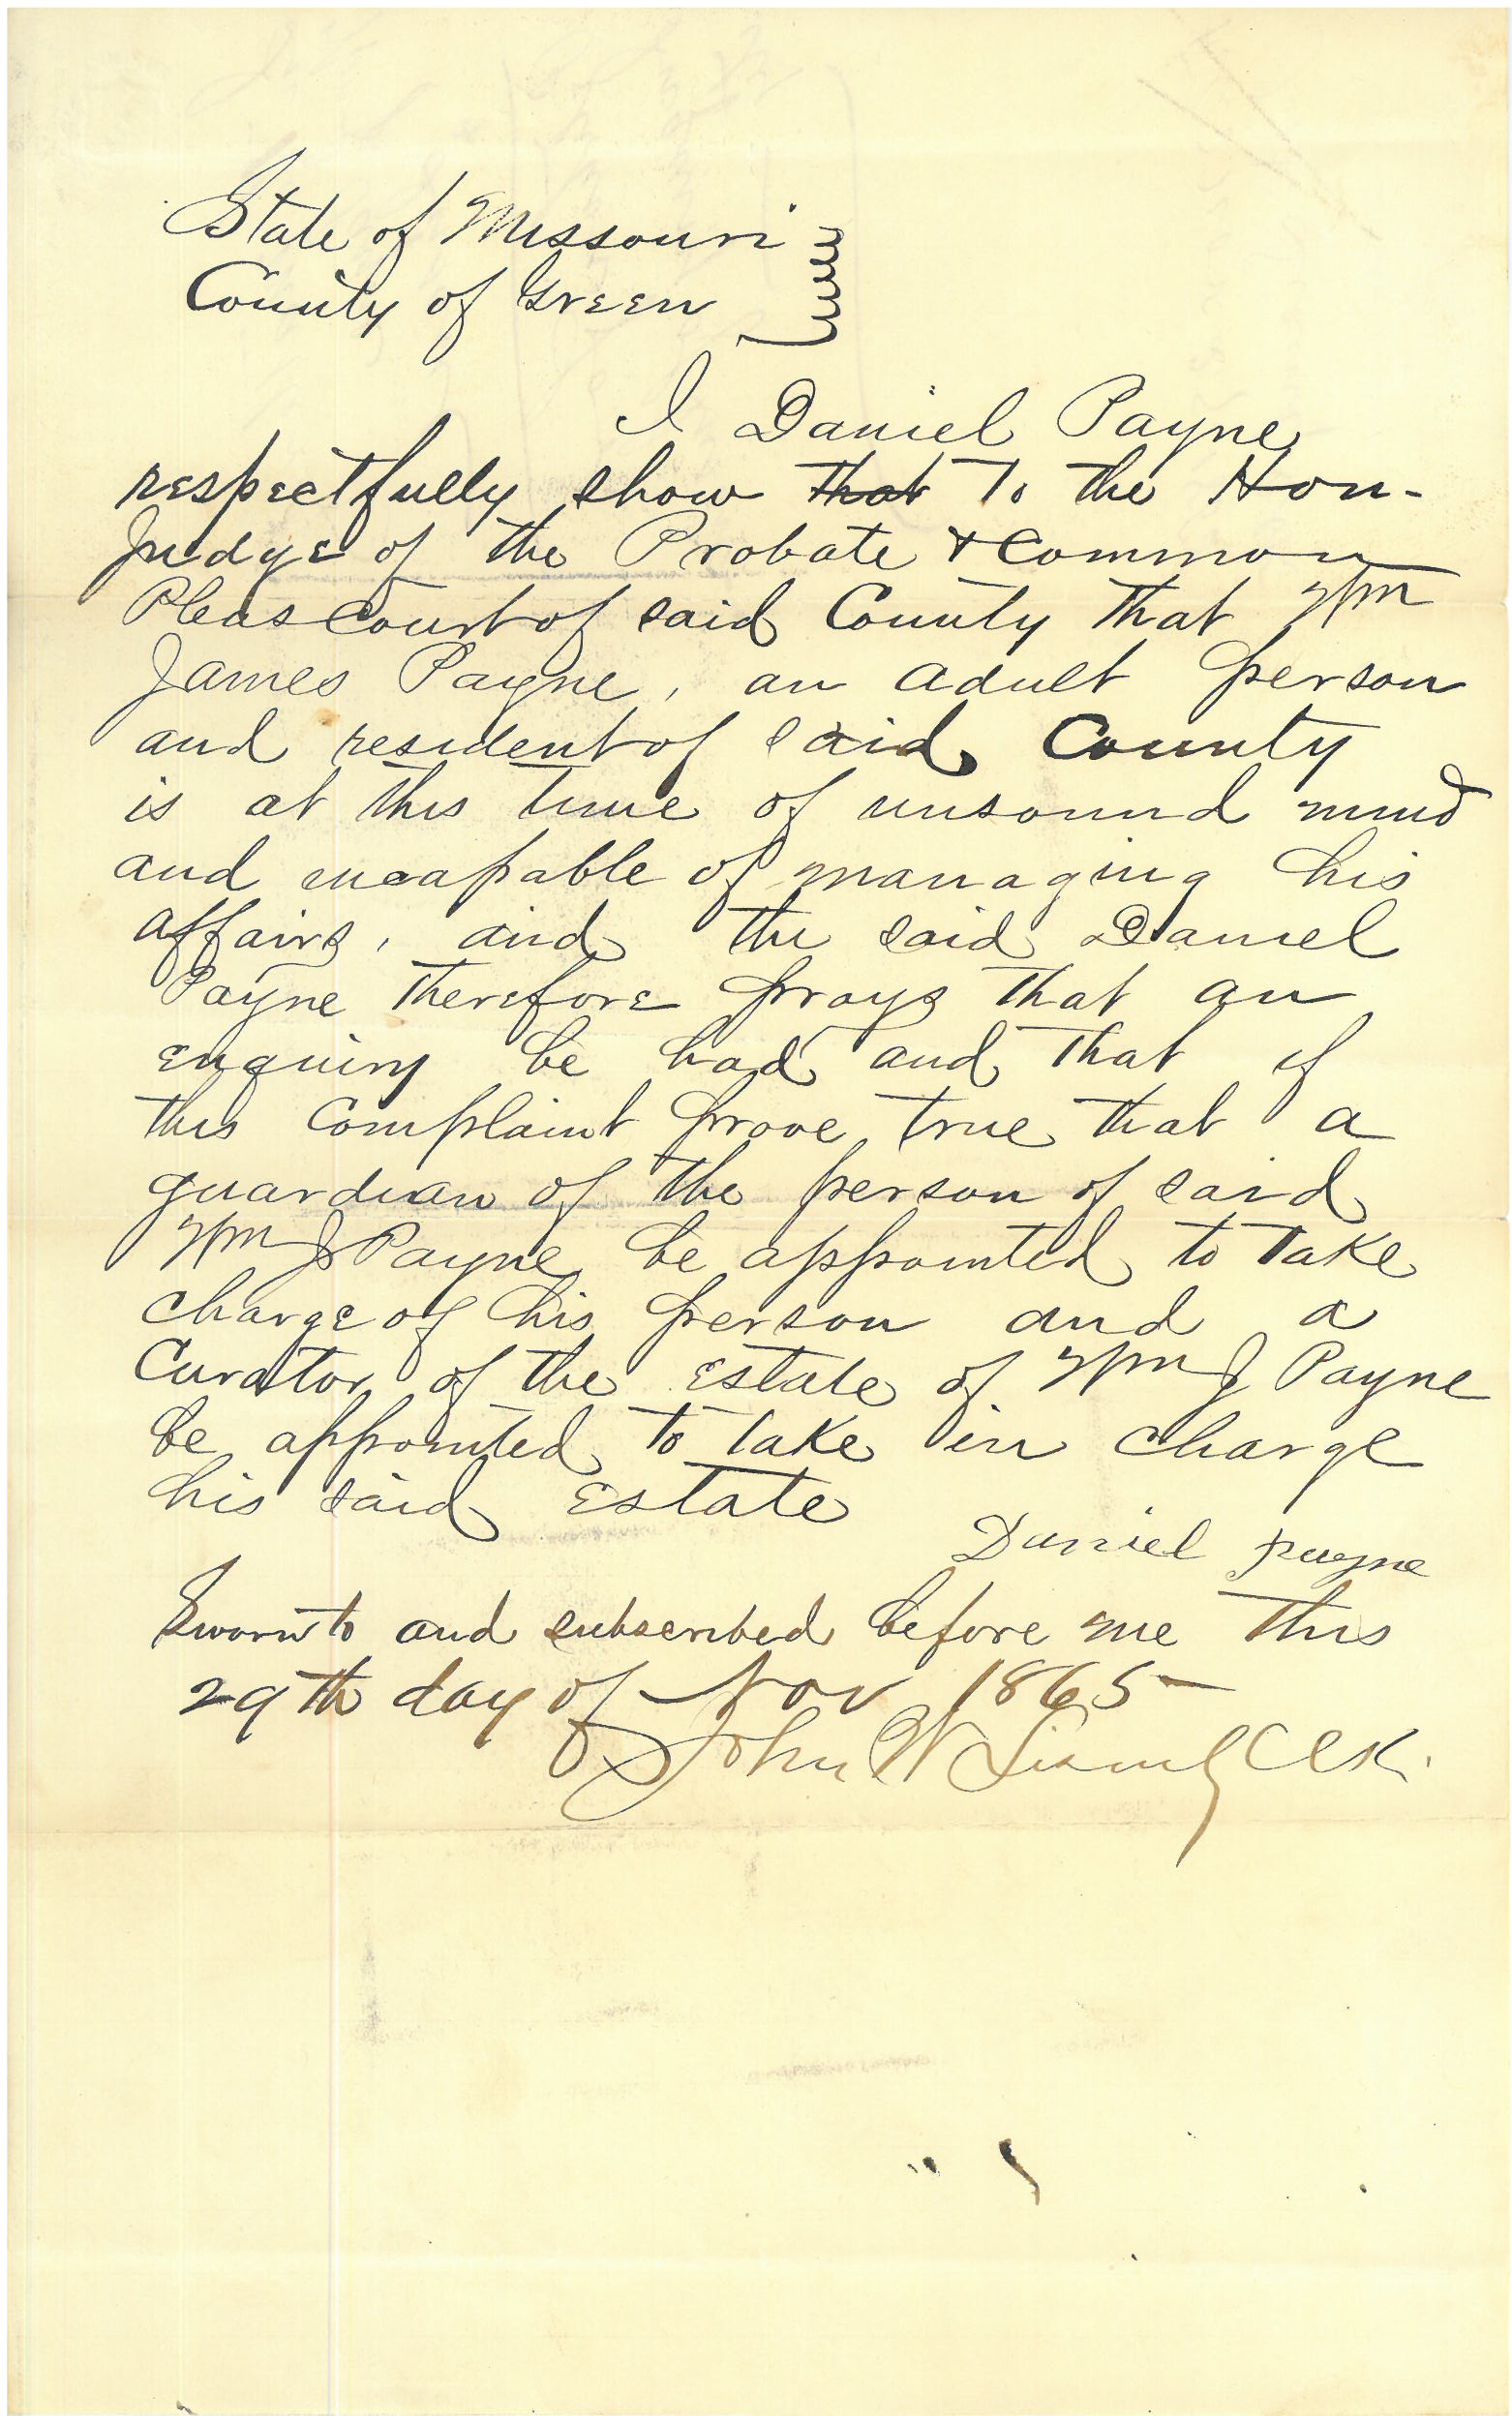 State of Missouri
County of Green
I Daniel Payne
respectfully show that To the Hon-
Judge of the Probate & Common
Pleas Court of said County that Wm
James Payne, an adult person
and resident of said County
is at this time of unsound mind
and incapable of managing his
affairs, and the said Daniel
Payne Therefore prays that an
enquiry be had and that if
this Complaint prove true that a
guardian of the person of said
Wm J Payne be appointed to take
charge of his person and a
Curator of the Estate of Wm J Payne
be appointed to take in charge
his said Estate
Daniel payne
Sworn to and subscribed before me this
29th day of Nov 1865
John W Clk.